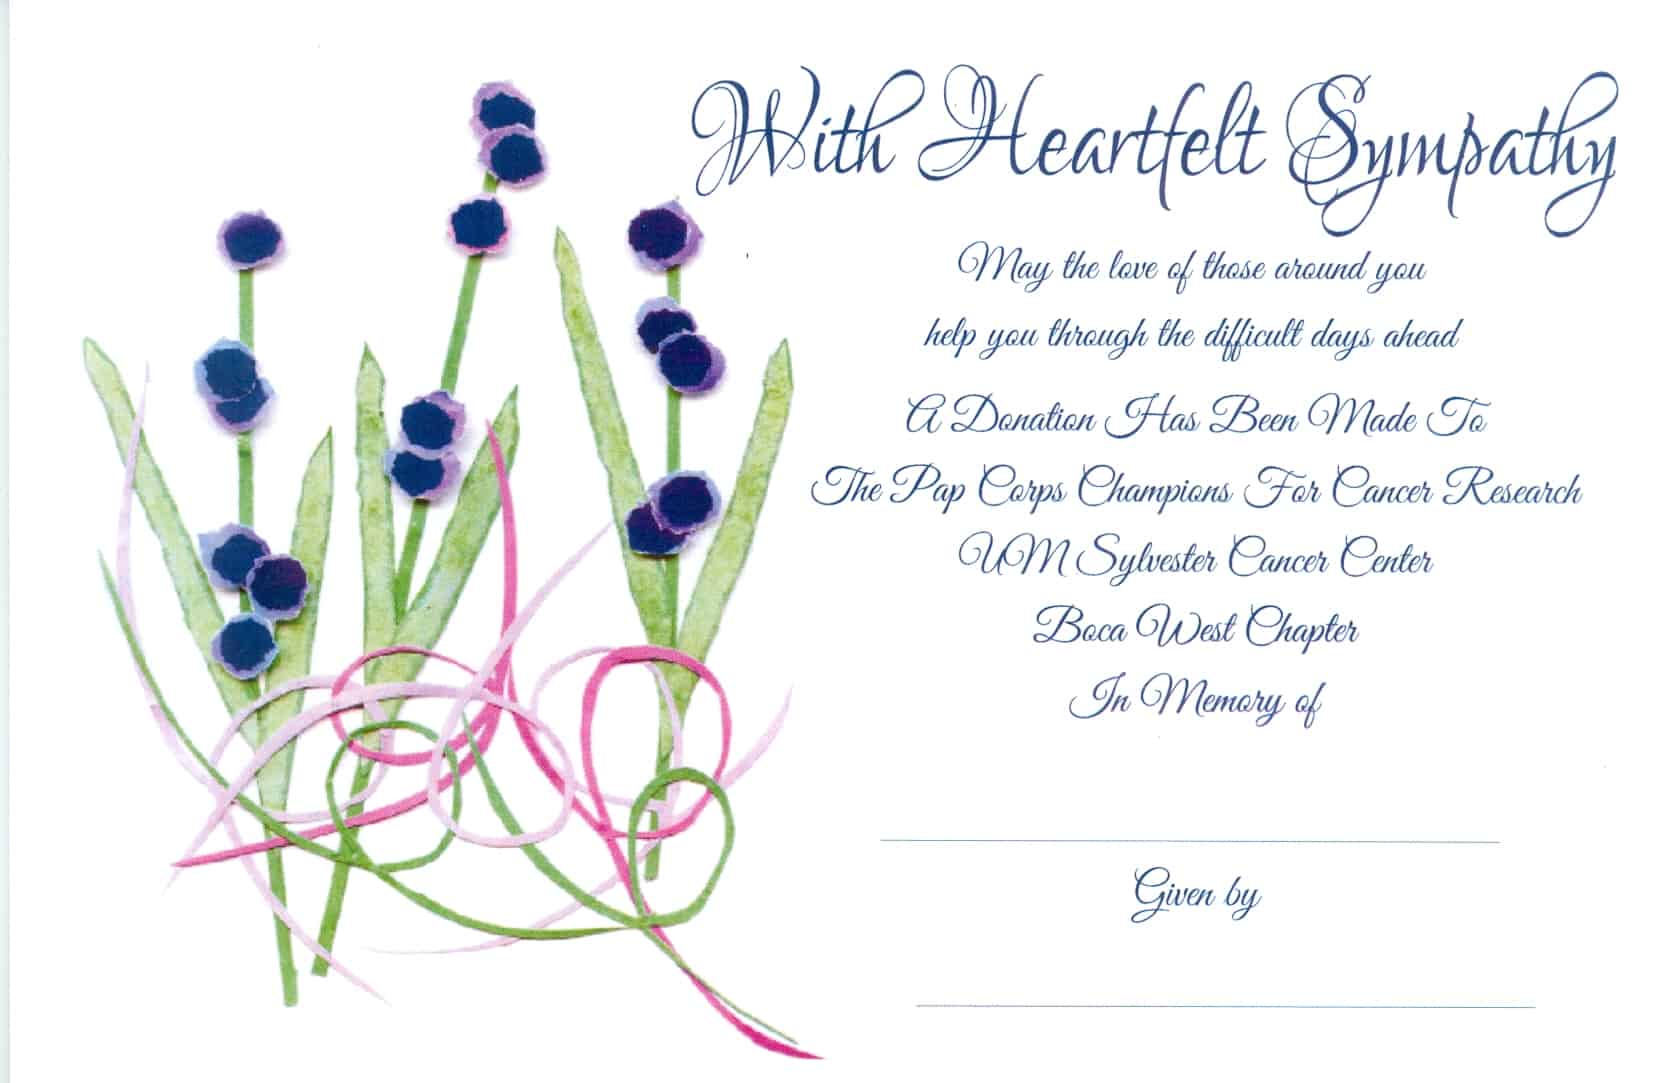 With Heartfelt Sympathy
May the love of those around you
help you through the difficult days ahead
A Donation Has Been Made To
The Pap Corps Champions For Cancer Research
UM Sylvester Cancer Center
Boca West Chapter
In Memory of
Given by